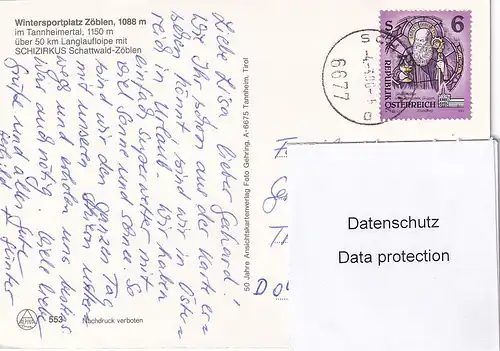 Wintersportplatz Zöblen, 1088 m
im Tannheimertal, 1150 m
über 50 km Langlaufloipe mit
SCHIZIRKUS Schattwald-Zöblen
Liebe Lisa, lieber Gerhard!
Wie Ihr schon aus der Karte er-
sehen könnt sind wir in Öster-
reich in Urlaub. Wir haben
einfach Superwetter mit
viel Sonne und Schnee. So
sind wir den ganzen Tag
mit unseren Skiern unter-
wegs und erholen uns bestens.
War auch nötig. Viele liebe
Grüße und alles Gute
Günter
50 Jahre Ansichtskartenverlag Foto Gehring, A-6675 Tannheim, Tirol
553 Nachdruck verboten
6677
6
REPUBLIK
ÖSTERREICH
Datenschutz
Data protection